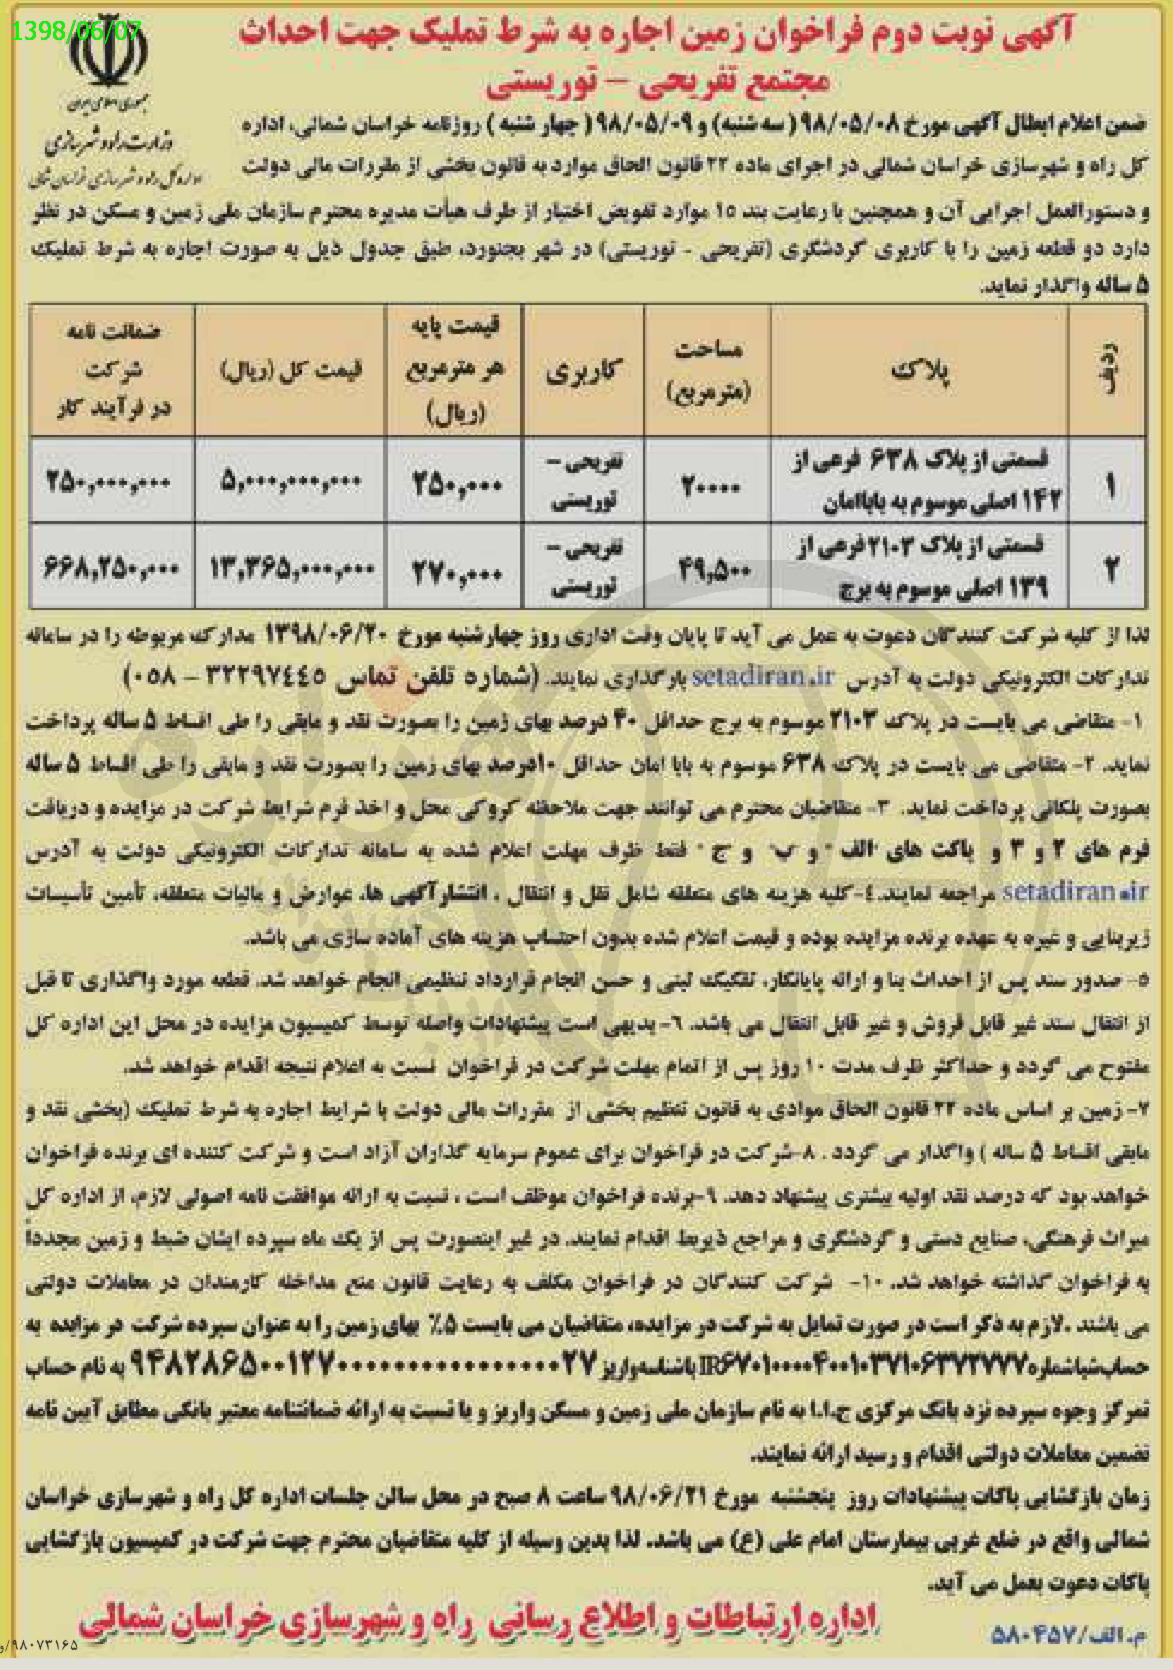 1398/06/07
آگهی نوبت دوم فراخوان زمین اجاره به شرط تملیک جهت احداث
مجتمع تفریحی – توریستی
جمهوری اسلامی ایران
وزارت راه و شهرسازی
اداره کل راه و شهرسازی خراسان شمالی
ضمن اعلام ابطال آگهی مورخ ۹۸/۰۵/۰۸ (سه شنبه) و ۹۸/۰۵/۰۹ ( چهار شنبه ) روزنامه خراسان شمالی، اداره
کل راه و شهرسازی خراسان شمالی در اجرای ماده ۲۲ قانون الحاق موارد به قانون بخشی از مقررات مالی دولت
و دستورالعمل اجرایی آن و همچنین با رعایت بند ۱۵ موارد تفویض اختیار از طرف هیأت مدیره محترم سازمان ملی زمین و مسکن در نظر
دارد دو قطعه زمین را با کاربری گردشگری (تفریحی - توریستی) در شهر بجنورد، طبق جدول ذیل به صورت اجاره به شرط تملیک
۵ ساله واگذار نماید.
ردیف | پلاک | مساحت (مترمربع) | کاربری | قیمت پایه هر مترمربع (ریال) | قیمت کل (ریال) | ضمانت نامه شرکت در فرآیند کار
۱ | قسمتی از پلاک ۶۳۸ فرعی از ۱۴۲ اصلی موسوم به باباامان | ۲۰۰۰۰ | تفریحی – توریستی | ۲۵۰,۰۰۰ | ۵,۰۰۰,۰۰۰,۰۰۰ | ۲۵۰,۰۰۰,۰۰۰
۲ | قسمتی از پلاک ۲۱۰۳ فرعی از ۱۳۹ اصلی موسوم به برج | ۴۹,۵۰۰ | تفریحی – توریستی | ۲۷۰,۰۰۰ | ۱۳,۳۶۵,۰۰۰,۰۰۰ | ۶۶۸,۲۵۰,۰۰۰
لذا از کلیه شرکت کنندگان دعوت به عمل می آید تا پایان وقت اداری روز چهارشنبه مورخ ۱۳۹۸/۰۶/۲۰ مدارک مربوطه را در سامانه
تدارکات الکترونیکی دولت به آدرس setadiran.ir بارگذاری نمایند. (شماره تلفن تماس ۳۲۲۹۷٤٤٥ – ۰۵۸)
۱- متقاضی می بایست در پلاک ۲۱۰۳ موسوم به برج حداقل ۴۰ درصد بهای زمین را بصورت نقد و مابقی را طی اقساط ۵ ساله پرداخت
نماید. ۲- متقاضی می بایست در پلاک ۶۳۸ موسوم به بابا امان حداقل ۱۰درصد بهای زمین را بصورت نقد و مابقی را طی اقساط ۵ ساله
بصورت پلکانی پرداخت نماید. ۳- متقاضیان محترم می توانند جهت ملاحظه کروکی محل و اخذ فرم شرایط شرکت در مزایده و دریافت
فرم های ۲ و ۳ و پاکت های "الف " و ب" و ج " فقط ظرف مهلت اعلام شده به سامانه تدارکات الکترونیکی دولت به آدرس
setadiran.ir مراجعه نمایند.٤-کلیه هزینه های متعلقه شامل نقل و انتقال ، انتشارآگهی ها، عوارض و مالیات متعلقه، تأمین تأسیسات
زیربنایی و غیره به عهده برنده مزایده بوده و قیمت اعلام شده بدون احتساب هزینه های آماده سازی می باشد.
٥- صدور سند پس از احداث بنا و ارائه پایانکار، تفکیک ثبتی و حسن انجام قرارداد تنظیمی انجام خواهد شد. قطعه مورد واگذاری تا قبل
از انتقال سند غیر قابل فروش و غیر قابل انتقال می باشد. ٦- بدیهی است پیشنهادات واصله توسط کمیسیون مزایده در محل این اداره کل
مفتوح می گردد و حداکثر ظرف مدت ۱۰ روز پس از اتمام مهلت شرکت در فراخوان نسبت به اعلام نتیجه اقدام خواهد شد.
۷- زمین بر اساس ماده ۲۲ قانون الحاق موادی به قانون تنظیم بخشی از مقررات مالی دولت با شرایط اجاره به شرط تملیک (بخشی نقد و
مابقی اقساط ۵ ساله ) واگذار می گردد . ۸-شرکت در فراخوان برای عموم سرمایه گذاران آزاد است و شرکت کننده ای برنده فراخوان
خواهد بود که درصد نقد اولیه بیشتری پیشنهاد دهد. ۹-برنده فراخوان موظف است ، نسبت به ارائه موافقت نامه اصولی لازم، از اداره کل
میراث فرهنگی، صنایع دستی و گردشگری و مراجع ذیربط اقدام نمایند. در غیر اینصورت پس از یک ماه سپرده ایشان ضبط و زمین مجدداً
به فراخوان گذاشته خواهد شد. ۱۰- شرکت کنندگان در فراخوان مکلف به رعایت قانون منع مداخله کارمندان در معاملات دولتی
می باشند .لازم به ذکر است در صورت تمایل به شرکت در مزایده، متقاضیان می بایست ۵٪ بهای زمین را به عنوان سپرده شرکت در مزایده به
حساب شبا شماره IR۶۷۰۱۰۰۰۰۴۰۰۱۰۳۷۱۰۶۳۷۲۷۷۷ با شناسه واریز ۹۴۸۲۸۶۵۰۰۱۲۷۰۰۰۰۰۰۰۰۰۰۰۰۰۰۰۰۲۷ به نام حساب
تمرکز وجوه سپرده نزد بانک مرکزی ج.ا.ا به نام سازمان ملی زمین و مسکن واریز و یا نسبت به ارائه ضمانتنامه معتبر بانکی مطابق آیین نامه
تضمین معاملات دولتی اقدام و رسید ارائه نمایند.
زمان بازگشایی پاکات پیشنهادات روز پنجشنبه مورخ ۹۸/۰۶/۲۱ ساعت ۸ صبح در محل سالن جلسات اداره کل راه و شهرسازی خراسان
شمالی واقع در ضلع غربی بیمارستان امام علی (ع) می باشد. لذا بدین وسیله از کلیه متقاضیان محترم جهت شرکت در کمیسیون بازگشایی
پاکات دعوت بعمل می آید.
اداره ارتباطات و اطلاع رسانی راه و شهرسازی خراسان شمالی
م.الف/۵۸۰۴۵۷
۹۸۰۷۳۱۶۵/و